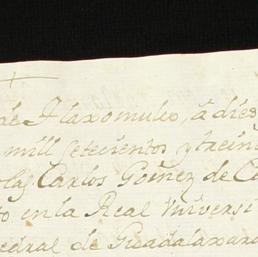 de Tlaxomulco, â dies
mill setecientos y treint
olas Carlos Gomez de Ce
to en la Real Universi
edral de Guadalaxara